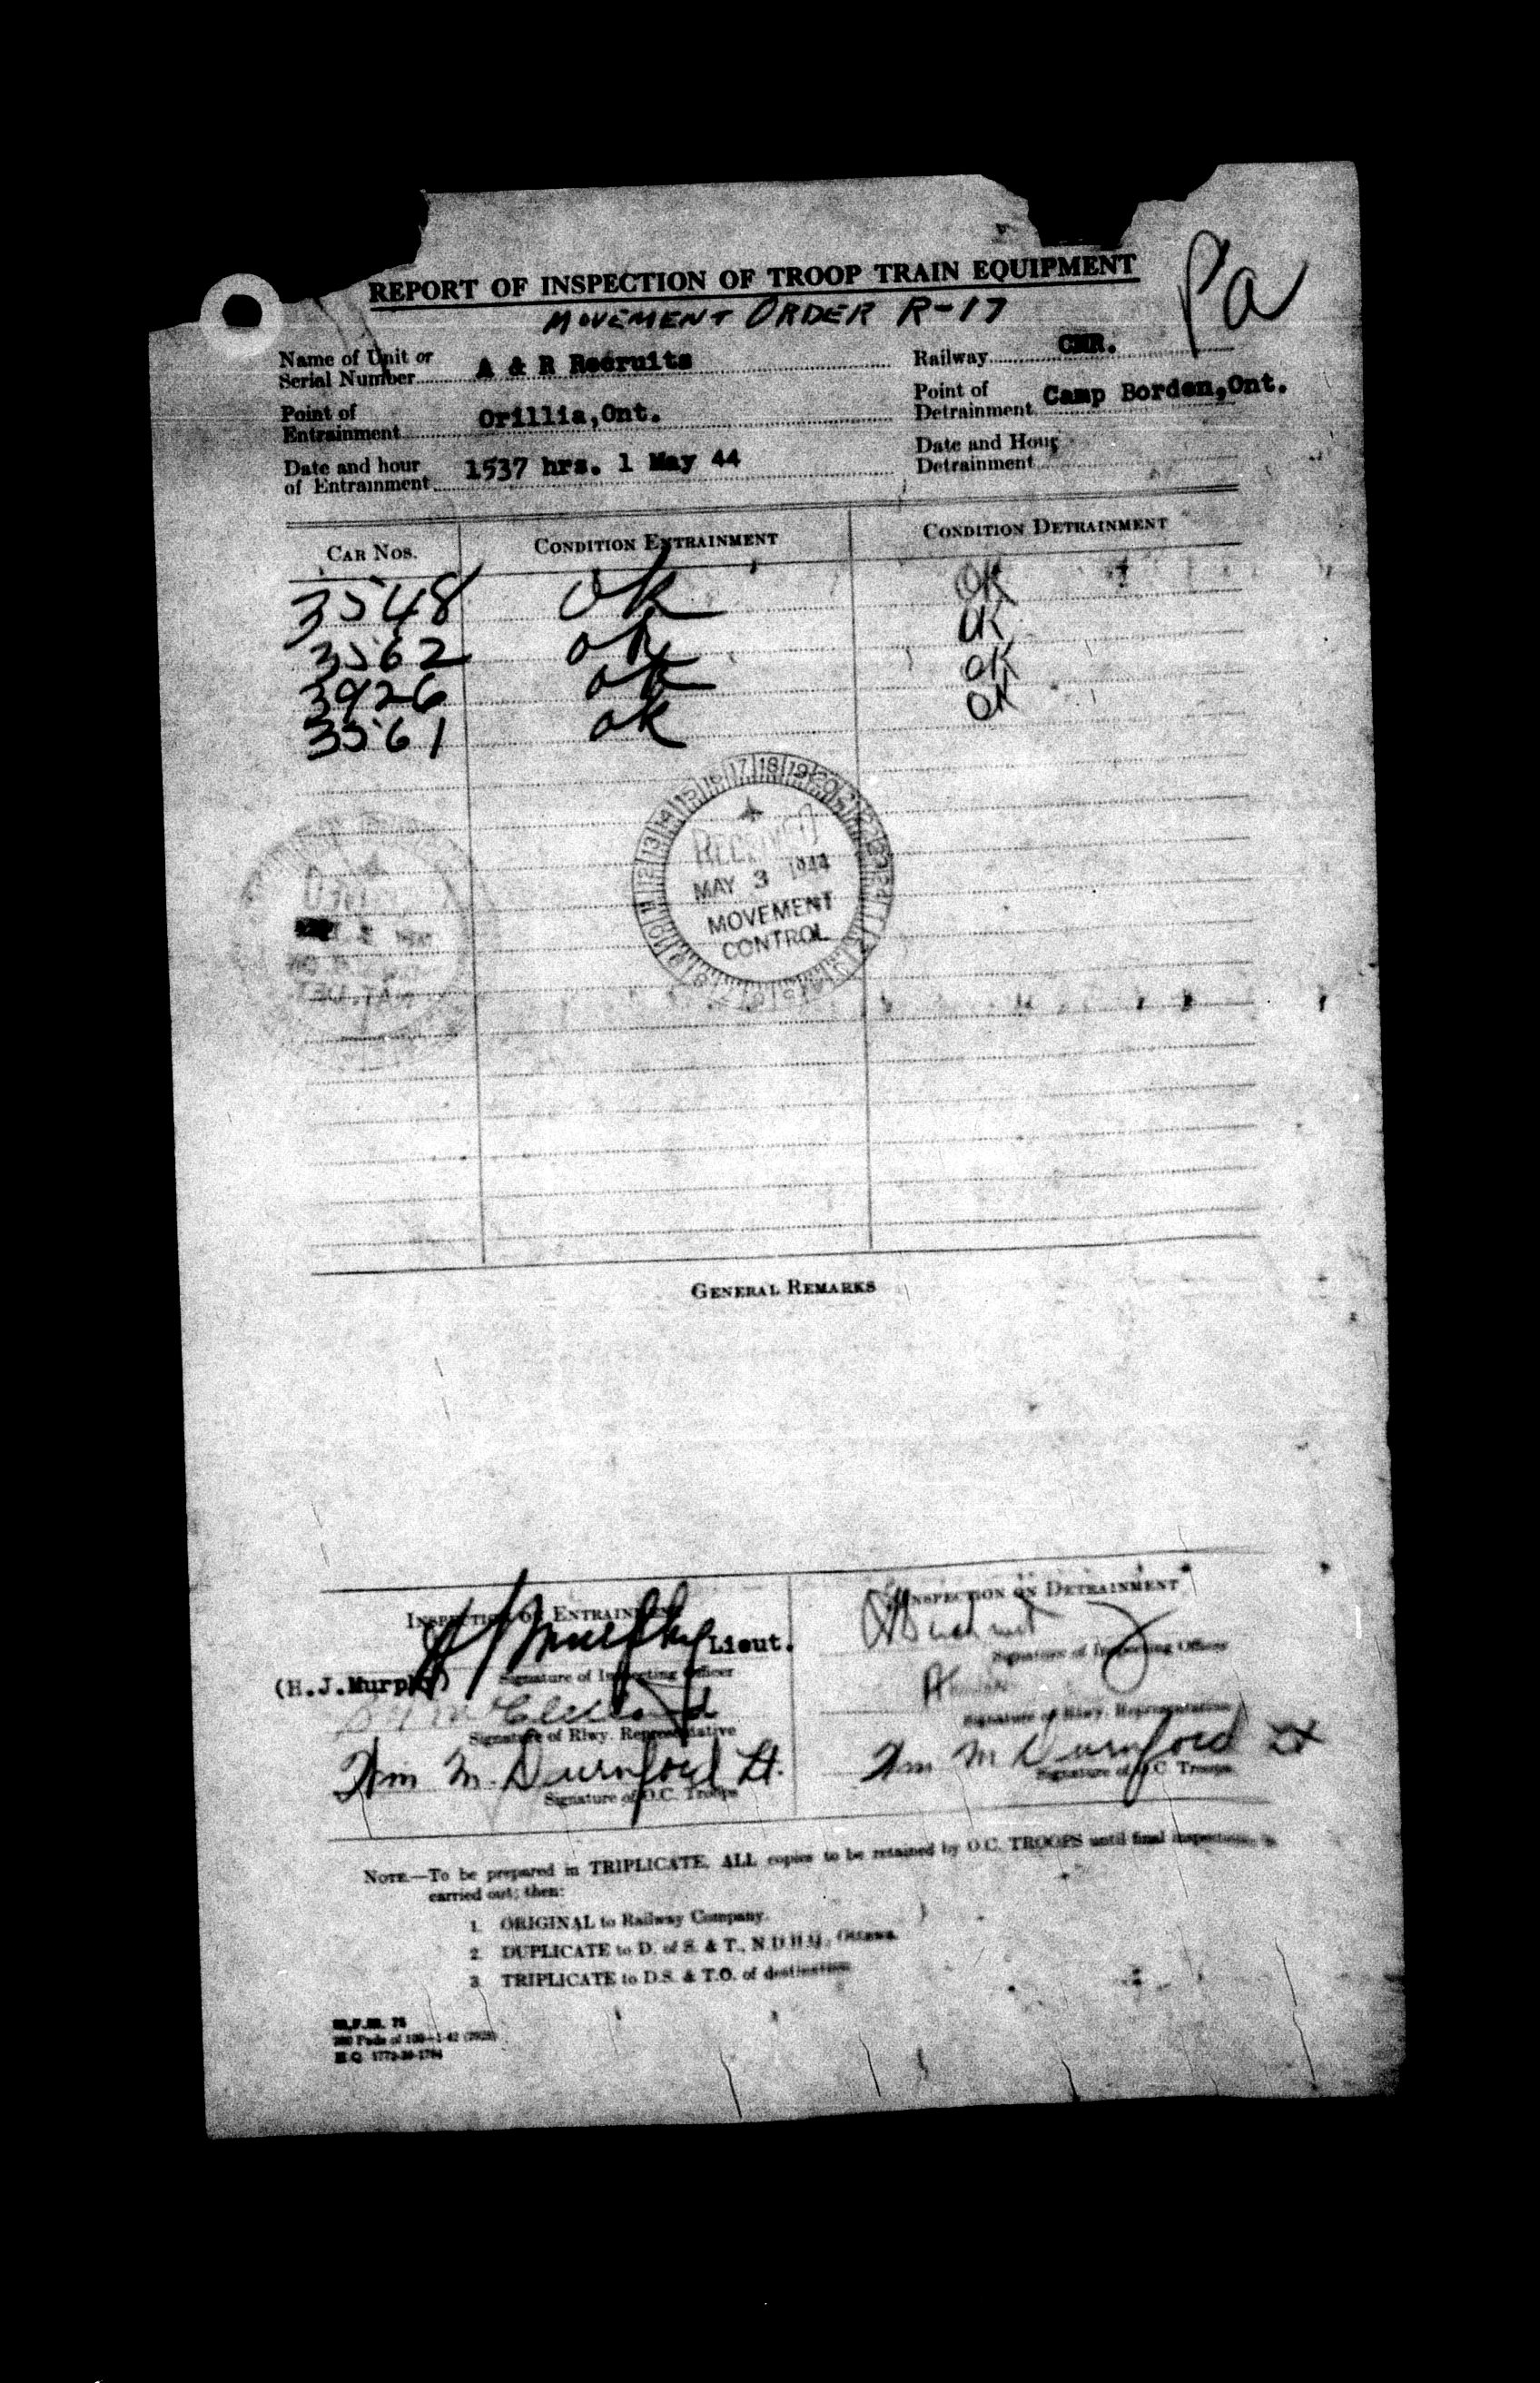 REPORT OF INSPECTION OF TROOP TRAIN EQUIPMENT
MOVEMENT ORDER R-17
Pa
Name of Unit or
Serial Number A & R Recruits
Railway CNR.
Point of
Entrainment Orillia,Ont.
Point of
Detrainment Camp Borden,Ont.
Date and hour
of Entrainment 1537 hrs. 1 May 44
Date and Hour
Detrainment
CAR NOS. CONDITION ENTRAINMENT CONDITION DETRAINMENT
3548 ok OK
3562 ok OK
3926 ok OK
3561 ok OK
RECEIVED
MAY 3 1944
MOVEMENT
CONTROL
GENERAL REMARKS
INSPECTION ON ENTRAINMENT
H J Murphy Lieut.
(H.J.Murphy) Signature of Inspecting Officer
Signature of Rlwy. Representative
Wm M. Durnford Lt.
Signature of O.C. Troops
INSPECTION ON DETRAINMENT
Signature of Inspecting Officer
Signature of Rlwy. Representative
Wm M Durnford Lt
Signature of O.C. Troops
NOTE.—To be prepared in TRIPLICATE. ALL copies to be retained by O.C. TROOPS until final inspection is
carried out; then:
1. ORIGINAL to Railway Company.
2. DUPLICATE to D. of S. & T., N.D.H.Q., Ottawa.
3. TRIPLICATE to D.S. & T.O. of destination